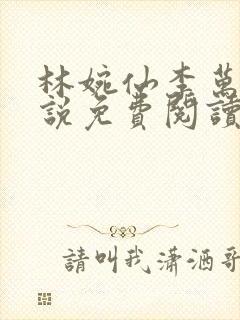 林婉仙李萬
說免費閱讀
請叫我瀟洒哥